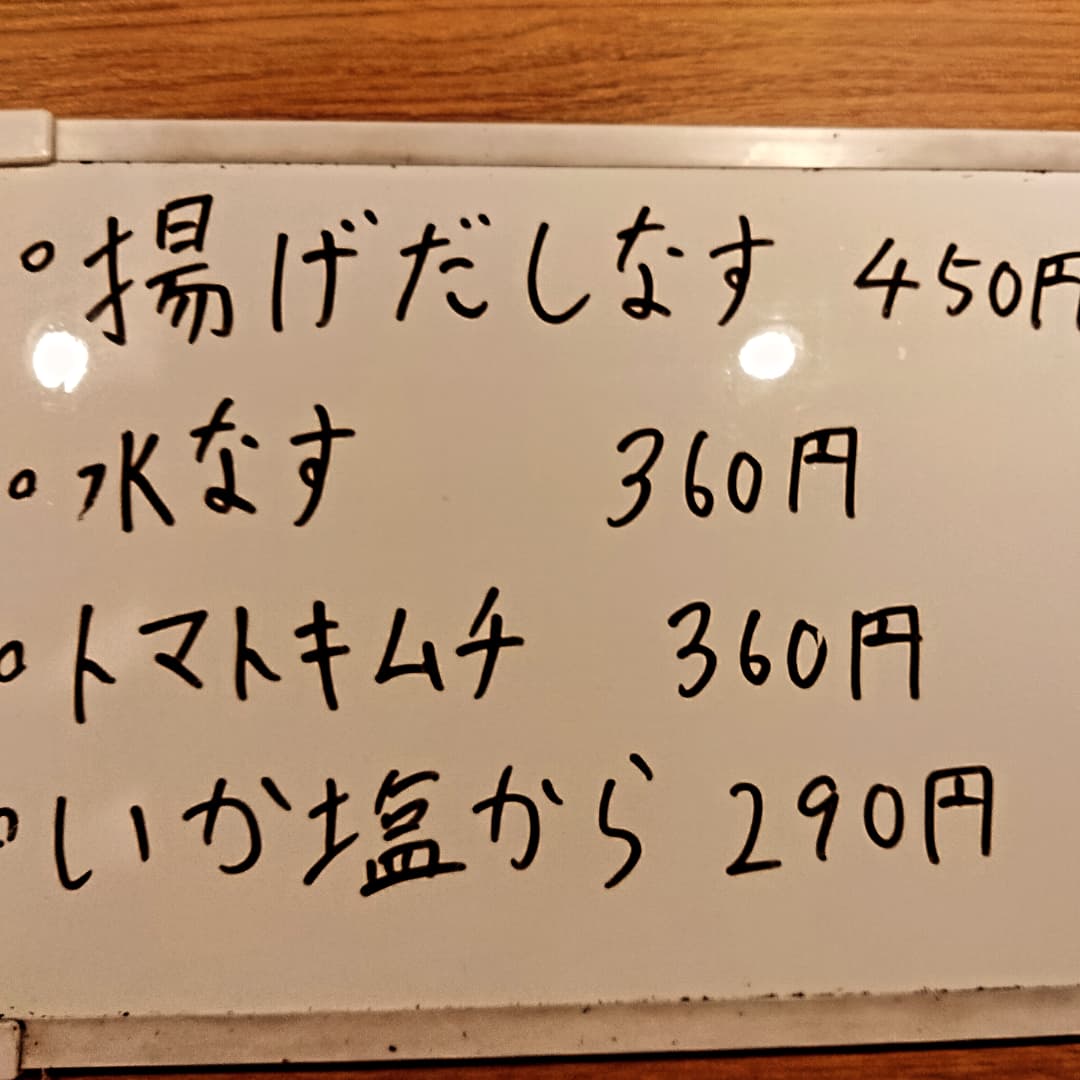 。揚げだしなす 450円
。水なす 360円
。トマトキムチ 360円
。いか塩から 290円